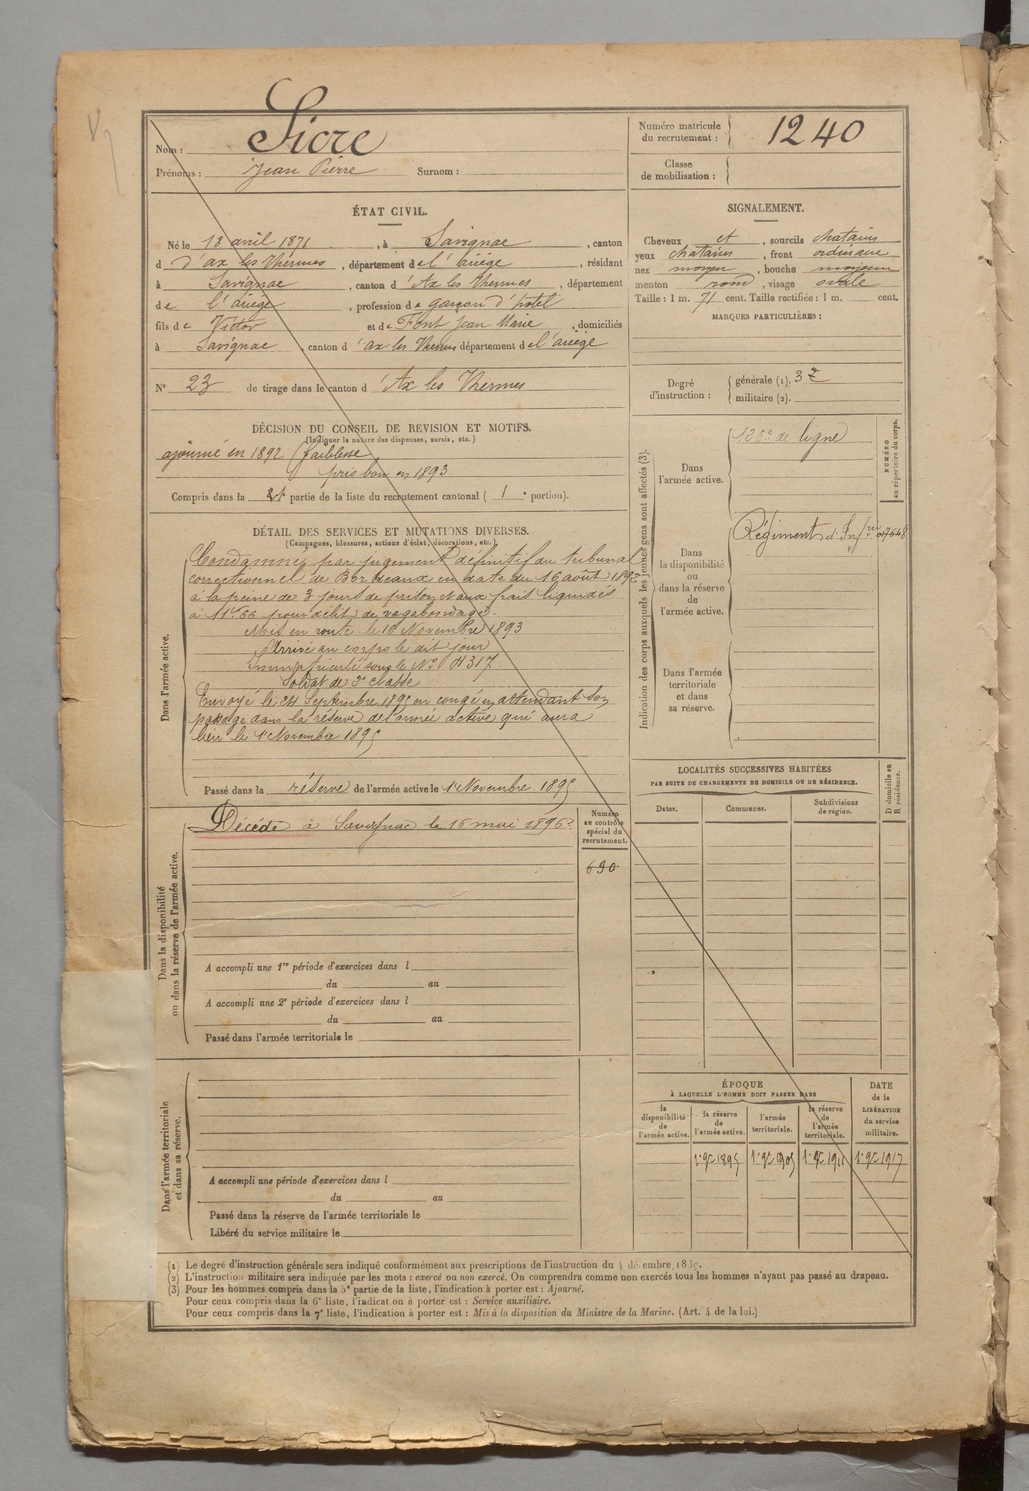 Nom : Sicre
Prénoms : Jean Pierre Surnom :
Numéro matricule du recrutement : 1240
Classe de mobilisation :
ÉTAT CIVIL.
Né le 18 avril 1871, à Savignac, canton
d d'ax les Thermes, département de l'ariège, résidant
à Savignac, canton d'Ax les Thermes, département
de l'ariège, profession de garçon d'hotel
fils de Victor et de Font Jean Marie, domiciliés
à Savignac, canton d'ax les Thermes département de l'ariège
N° 23 de tirage dans le canton d'Ax les Thermes
SIGNALEMENT.
Cheveux et, sourcils chatains
yeux chatains, front ordinaire
nez moyen, bouche moyenne
menton rond, visage ovale
Taille : 1 m. 71 cent. Taille rectifiée : 1 m. cent.
MARQUES PARTICULIÈRES :
Degré d'instruction :
générale (1). 3
militaire (2).
DÉCISION DU CONSEIL DE REVISION ET MOTIFS.
(Indiquer la nature des dispenses, sursis, etc.)
ajourné en 1892 faiblesse
pris bon en 1893
Compris dans la partie de la liste du recrutement cantonal ( 1 portion).
DÉTAIL DES SERVICES ET MUTATIONS DIVERSES.
(Campagnes, blessures, actions d'éclat, décorations, etc.)
Dans l'armée active.
Condamné par jugement définitif du tribunal
correctionnel de Bordeaux en date du 16 août 1892
à la peine de 3 jours de prison et aux frais liquidés
à 11f.66 pour délit de vagabondage.
Mis en route le 16 Novembre 1893
Arrivé au corps le dit jour
Immatriculé sous le N° 4317
Soldat de 2e classe
Envoyé le 24 Septembre 1895 en congé en attendant son
passage dans la réserve de l'armée active qui aura
lieu le 1er Novembre 1895
Passé dans la réserve de l'armée active le 1er Novembre 1895
Dans la disponibilité ou dans la réserve de l'armée active.
Décédé à Savignac le 16 mai 1896
Numéro au contrôle spécial du recrutement.
690
A accompli une 1re période d'exercices dans l
du au
A accompli une 2e période d'exercices dans l
du au
Passé dans l'armée territoriale le
Dans l'armée territoriale et dans sa réserve.
A accompli une période d'exercices dans l
du au
Passé dans la réserve de l'armée territoriale le
Libéré du service militaire le
Indication des corps auxquels les jeunes gens sont affectés (3).
NUMÉRO au répertoire du corps.
Dans l'armée active.
126e de ligne
Dans la disponibilité ou dans la réserve de l'armée active.
Régiment d'Inf.
Dans l'armée territoriale et dans sa réserve.
LOCALITÉS SUCCESSIVES HABITÉES
PAR SUITE DE CHANGEMENTS DE DOMICILE OU DE RÉSIDENCE.
D domicile ou R résidence.
Dates. Communes. Subdivisions de région.
ÉPOQUE
À LAQUELLE L'HOMME DOIT PASSER DANS
DATE de la LIBÉRATION du service militaire.
la disponibilité de l'armée active.
la réserve de l'armée active.
l'armée territoriale.
la réserve de l'armée territoriale.
1er 9bre 1895 1er 9bre 1905 1er 9bre 1911 1er 9bre 1917
(1) Le degré d'instruction générale sera indiqué conformément aux prescriptions de l'instruction du 4 décembre 1889.
(2) L'instruction militaire sera indiquée par les mots : exercé ou non exercé. On comprendra comme non exercés tous les hommes n'ayant pas passé au drapeau.
(3) Pour les hommes compris dans la 5e partie de la liste, l'indication à porter est : Ajourné.
Pour ceux compris dans la 6e liste, l'indication à porter est : Service auxiliaire.
Pour ceux compris dans la 7e liste, l'indication à porter est : Mis à la disposition du Ministre de la Marine. (Art. 4 de la loi.)